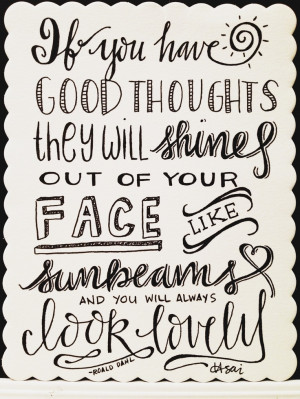 If you have
GOOD THOUGHTS
they WILL shine
OUT OF YOUR
FACE LIKE
sunbeams
AND YOU WILL ALWAYS
look lovely
-ROALD DAHL